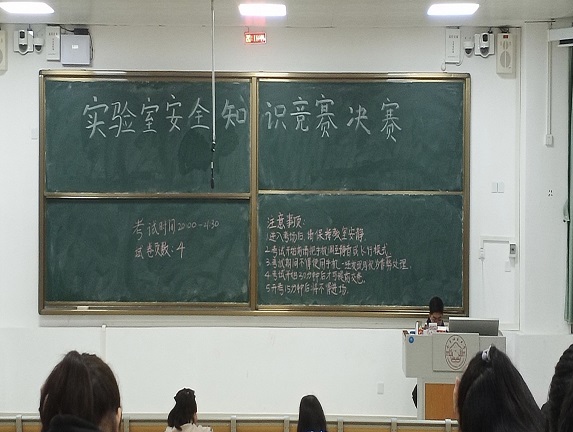 实验室安全知识竞赛决赛
考试时间20:00-21:30
试卷页数:4
注意事项:
1.进入考场后,请保持教室安静.
2.考试开始前请把手机调至静音或飞行模式.
3.考试期间不得使用手机,一经发现将视为作弊处理.
4.考试开始30分钟后才可提前交卷.
5.开考15分钟后将不得进场.